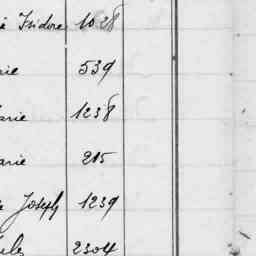 Isidore 1028
rie 539
arie 1238
arie 215
Joseph 1239
2304